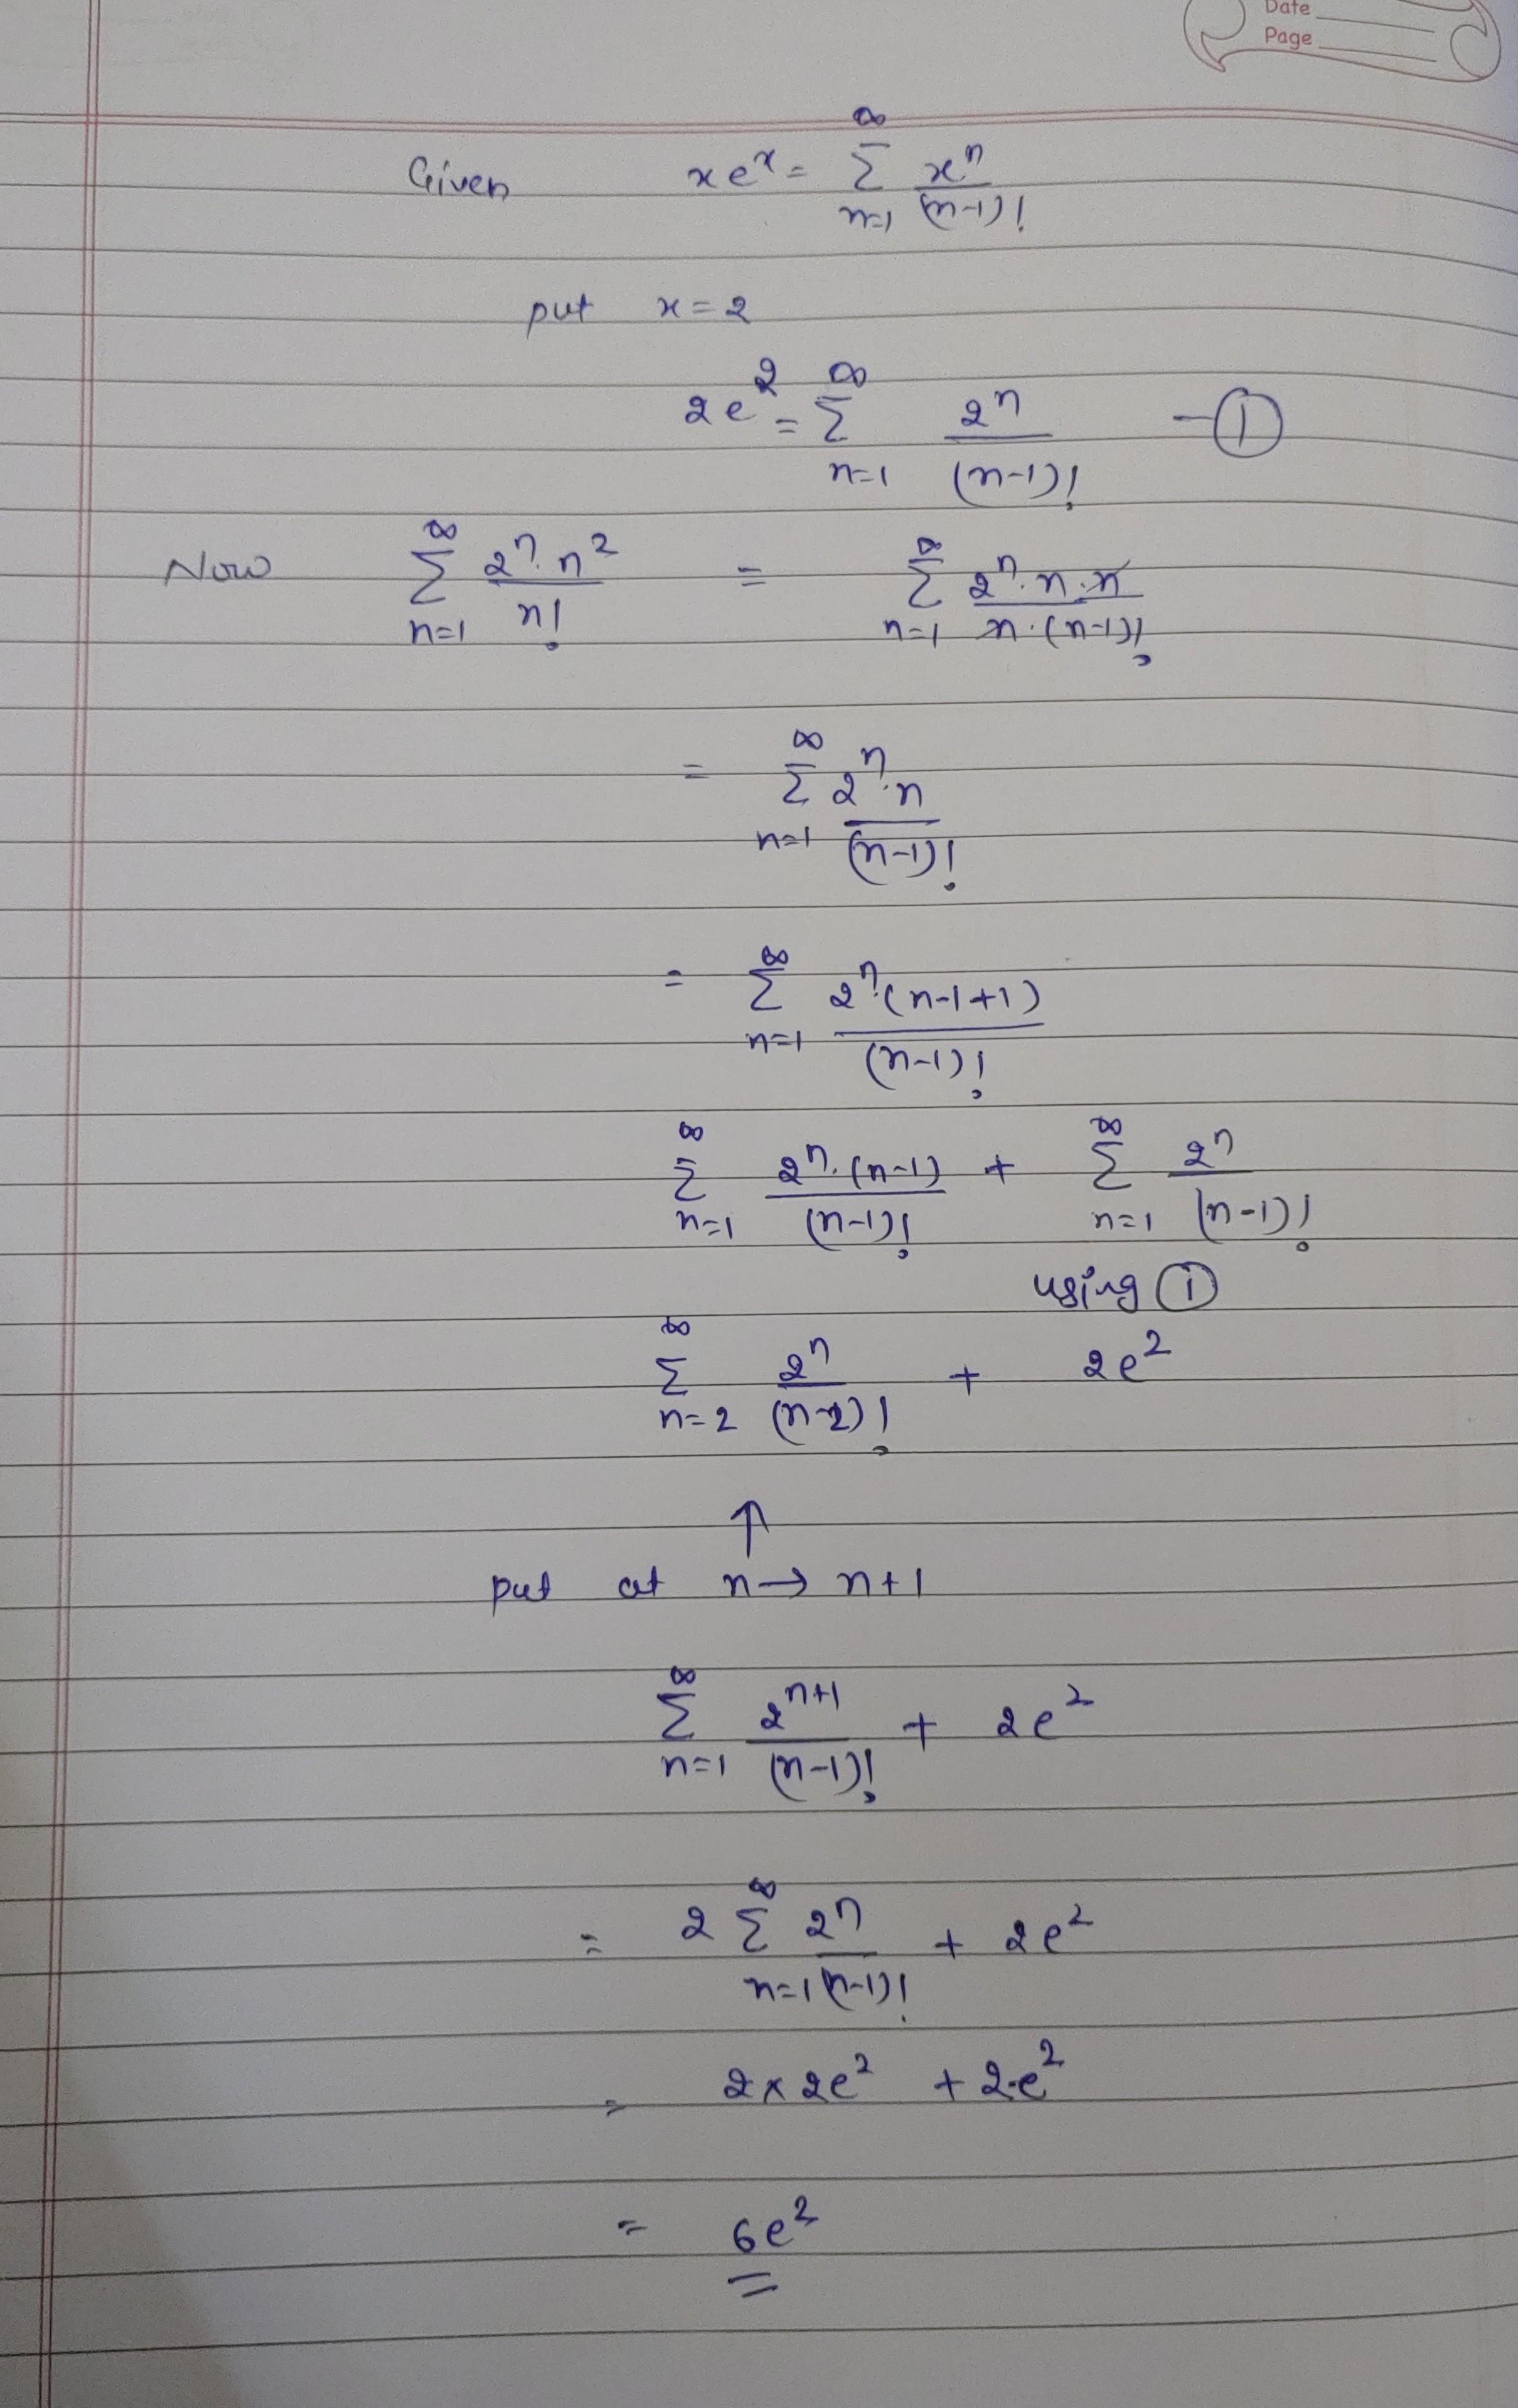 Date
Page
Given xe^x = ∞ Σ n=1 x^n/(n-1)!
put x = 2
2e^2 = ∞ Σ n=1 2^n/(n-1)! - ①
Now ∞ Σ n=1 2^n · n^2/n! = ∞ Σ n=1 2^n · n · n/n · (n-1)!
= ∞ Σ n=1 2^n · n/(n-1)!
= ∞ Σ n=1 2^n · (n-1+1)/(n-1)!
∞ Σ n=1 2^n · (n-1)/(n-1)! + ∞ Σ n=1 2^n/(n-1)!
using ①
∞ Σ n=2 2^n/(n-2)! + 2e^2
↑
put at n → n+1
∞ Σ n=1 2^(n+1)/(n-1)! + 2e^2
= 2 ∞ Σ n=1 2^n/(n-1)! + 2e^2
= 2 × 2e^2 + 2·e^2
= 6e^2